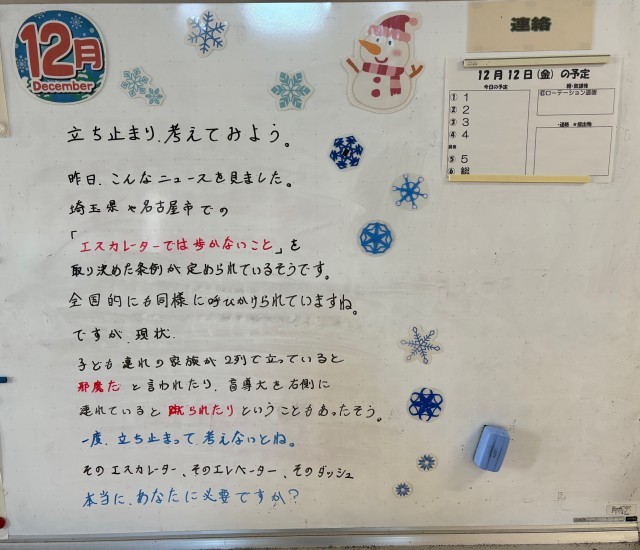 12月
December
連絡
12月12日(金)の予定
今日の予定
① 1
② 2
③ 3
④ 4
⑤ 5
⑥ 総
・連絡 ★提出物
立ち止まり、考えてみよう。
昨日、こんなニュースを見ました。
埼玉県や名古屋市での
「エスカレーターでは歩かないこと」を
取り決めた条例が定められているそうです。
全国的にも同様に呼びかけられていますね。
ですが、現状、
子ども連れの家族が2列で立っていると
邪魔だと言われたり、盲導犬を右側に
連れていると蹴られたりということもあったそう。
一度、立ち止まって考えないとね。
そのエスカレーター、そのエレベーター、そのダッシュ
本当に、あなたに必要ですか?